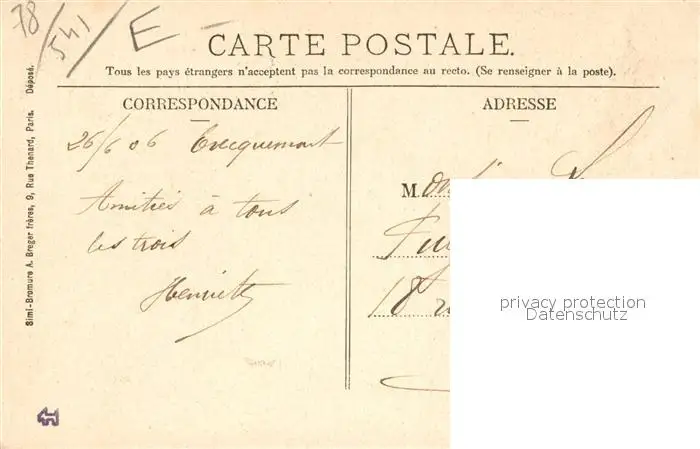 78/541/E
CARTE POSTALE.
Tous les pays étrangers n'acceptent pas la correspondance au recto. (Se renseigner à la poste).
CORRESPONDANCE
26/6 06 Evecquemont
Amitiés à tous
les trois
Henriette
ADRESSE
M.
18
privacy protection
Datenschutz
Simi-Bromure A. Breger frères, 9, Rue Thenard, Paris. Déposé.